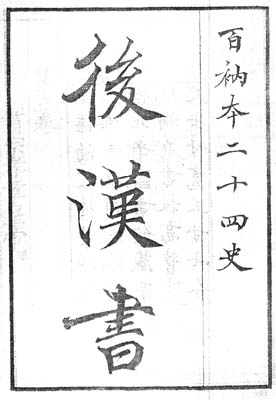 百衲本二十四史
後漢書